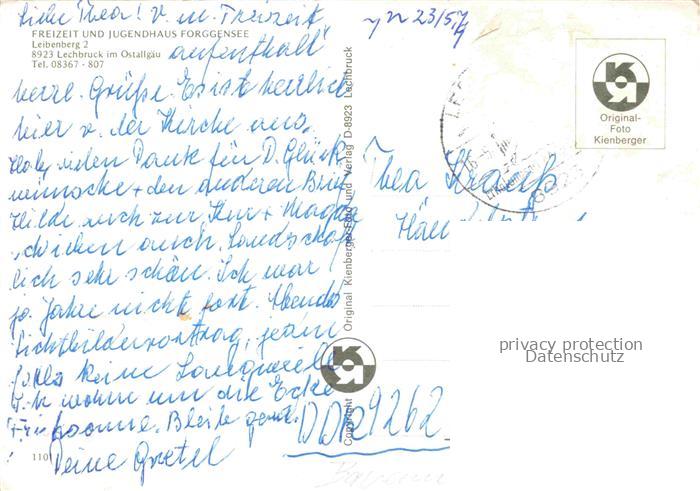 Liebe Thea! V. m. Freizeit
yn 23/5.74
FREIZEIT UND JUGENDHAUS FORGGENSEE
Leibenberg 2
8923 Lechbruck im Ostallgäu
Tel. 08367 - 807
aufenthalt
herzl. Grüße. Es ist herrlich
hier v. der Kirche aus.
vielen Dank für D. Glück
wünsche + den anderen Brief
Hilde auch zur Kur + Magda
auch. Landschaft
lich sehr schön. Ich war
ja Jahre nicht fort. Abends
Lichtbildervortrag, jeden
falls keine Langweile
wohnt um die Ecke
Bleibe ges.
Deine Gretel
110
Copyright Original Kienberger-Foto und Verlag D-8923 Lechbruck
Original-
Foto
Kienberger
8923
Thea Strauß
DDR 9262
privacy protection
Datenschutz